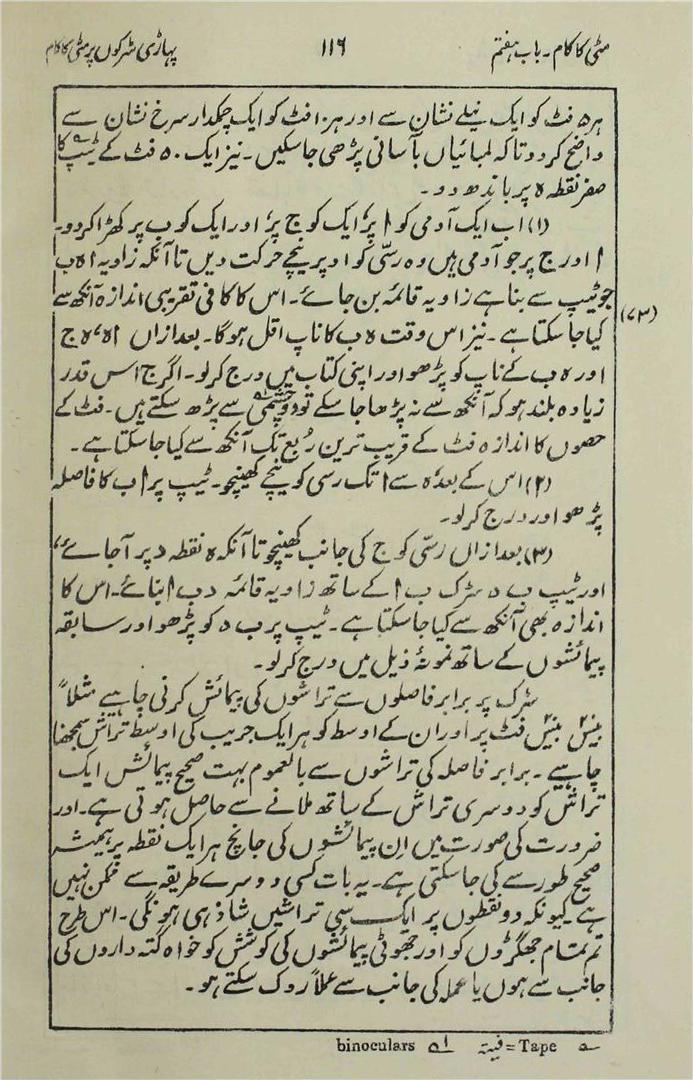 مٹی کا کام۔ باب ہفتم
۱۱۶
پہاڑی سڑکوں پر مٹی کا کام
ہر ۵ فٹ کو ایک نیلے نشان سے اور ہر ۱۰ فٹ کو ایک چمکدار سرخ نشان سے
واضح کردو تاکہ لمبائیاں بآسانی پڑھی جاسکیں۔ نیز ایک ۵۰ فٹ کے ٹیپ کا
صفر نقطہ ہ پر باندھ دو۔
(۱) اب ایک آدمی کو ا پر، ایک کو ج پر، اور ایک کو ب پر کھڑا کردو۔
ا اور ج پر جو آدمی ہیں وہ رسّی کو اوپر نیچے حرکت دیں تا آنکہ زاویہ ا ہ ب
جو ٹیپ سے بنا ہے زاویہ قائمہ بن جائے۔ اس کا کافی تقریبی اندازہ آنکھ سے
(۷۳)
کیا جا سکتا ہے۔ نیز اس وقت ہ ب کا ناپ اقل ہوگا۔ بعد ازاں ا ہ، ہ ج
اور ہ ب کے ناپ کو پڑھو اور اپنی کتاب میں درج کرلو۔ اگر ج اس قدر
زیادہ بلند ہو کہ آنکھ سے نہ پڑھا جا سکے تو دوچشمی سے پڑھ سکتے ہیں۔ فٹ کے
حصوں کا اندازہ فٹ کے قریب ترین رُبع تک آنکھ سے کیا جا سکتا ہے۔
(۲) اس کے بعد ہ سے ا تک رسی کو نیچے کھینچو۔ ٹیپ پر ا ب کا فاصلہ
پڑھو اور درج کرلو۔
(۳) بعد ازاں رسّی کو ج کی جانب کھینچو تا آنکہ ہ نقطہ د پر آجائے،
اور ٹیپ ب د سڑک ب ا کے ساتھ زاویہ قائمہ د ب ا بنائے۔ اس کا
اندازہ بھی آنکھ سے کیا جا سکتا ہے۔ ٹیپ پر ب د کو پڑھو اور سابقہ
پیمائشوں کے ساتھ نمونۂ ذیل میں درج کرلو۔
سڑک پر برابر فاصلوں سے تراشوں کی پیمائش کرنی چاہیے مثلاً
بیس بیس فٹ پر اور ان کے اوسط کو ہر ایک جریب کی اوسط تراش سمجھنا
چاہیے۔ برابر فاصلہ کی تراشوں سے بالعموم بہت صحیح پیمائش ایک
تراش کو دوسری تراش کے ساتھ ملانے سے حاصل ہوتی ہے۔ اور
ضرورت کی صورت میں اِن پیمائشوں کی جانچ ہر ایک نقطہ پر ہمیشہ
صحیح طور سے کی جا سکتی ہے۔ یہ بات کسی دوسرے طریقہ سے ممکن نہیں
ہے۔ کیونکہ دو نقطوں پر ایک سی تراشیں شاذ ہی ہونگی۔ اس طرح
تم تمام جھگڑوں کو اور جھوٹی پیمائشوں کی کوشش کو خواہ گتہ داروں کی
جانب سے ہوں یا عملہ کی جانب سے عملاً روک سکتے ہو۔
؎ Tape = فیتہ ؎۱ binoculars